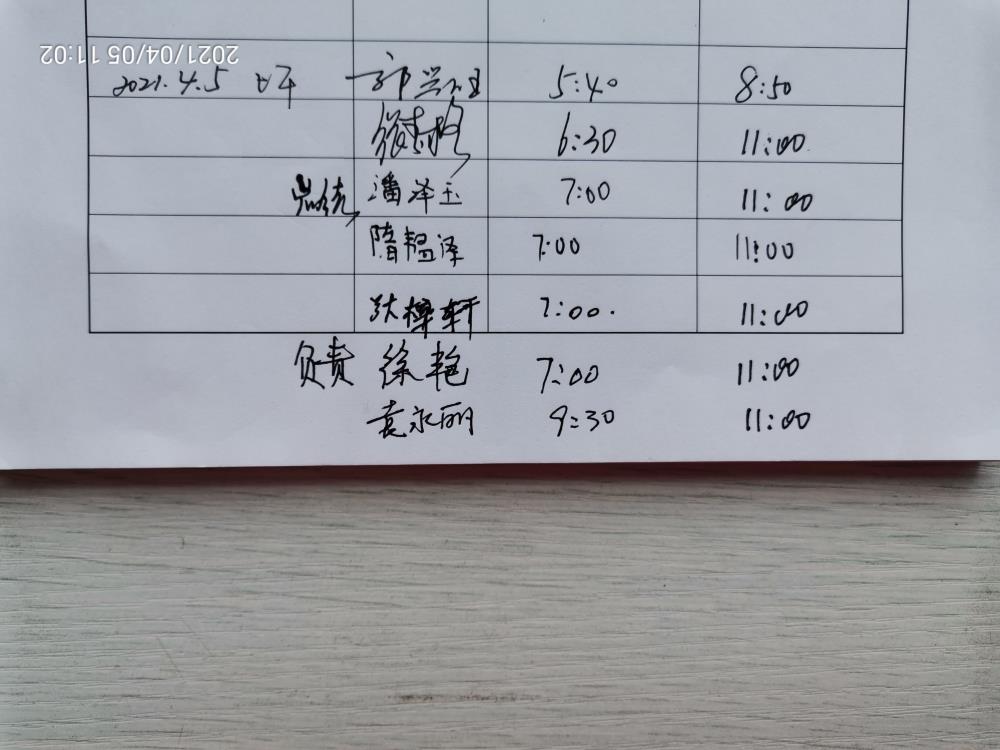 2021/04/05 11:02
2021.4.5 5:40 8:50
6:30 11:00
潘泽玉 7:00 11:00
隋韫泽 7:00 11:00
轩 7:00. 11:00
负责 徐艳 7:00 11:00
袁永丽 9:30 11:00